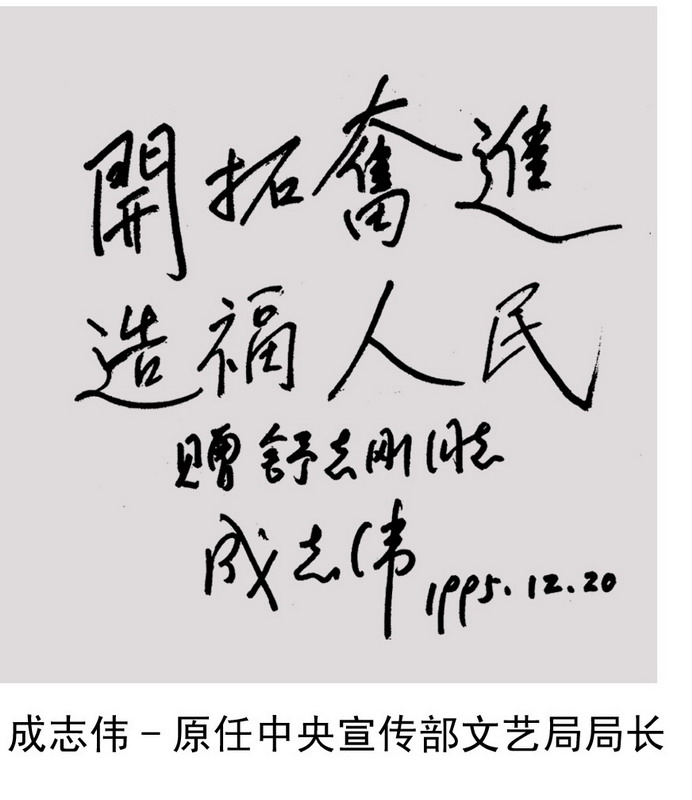 開拓奮進
造福人民
赠舒志刚同志
成志伟 1995.12.20
成志伟－原任中央宣传部文艺局局长